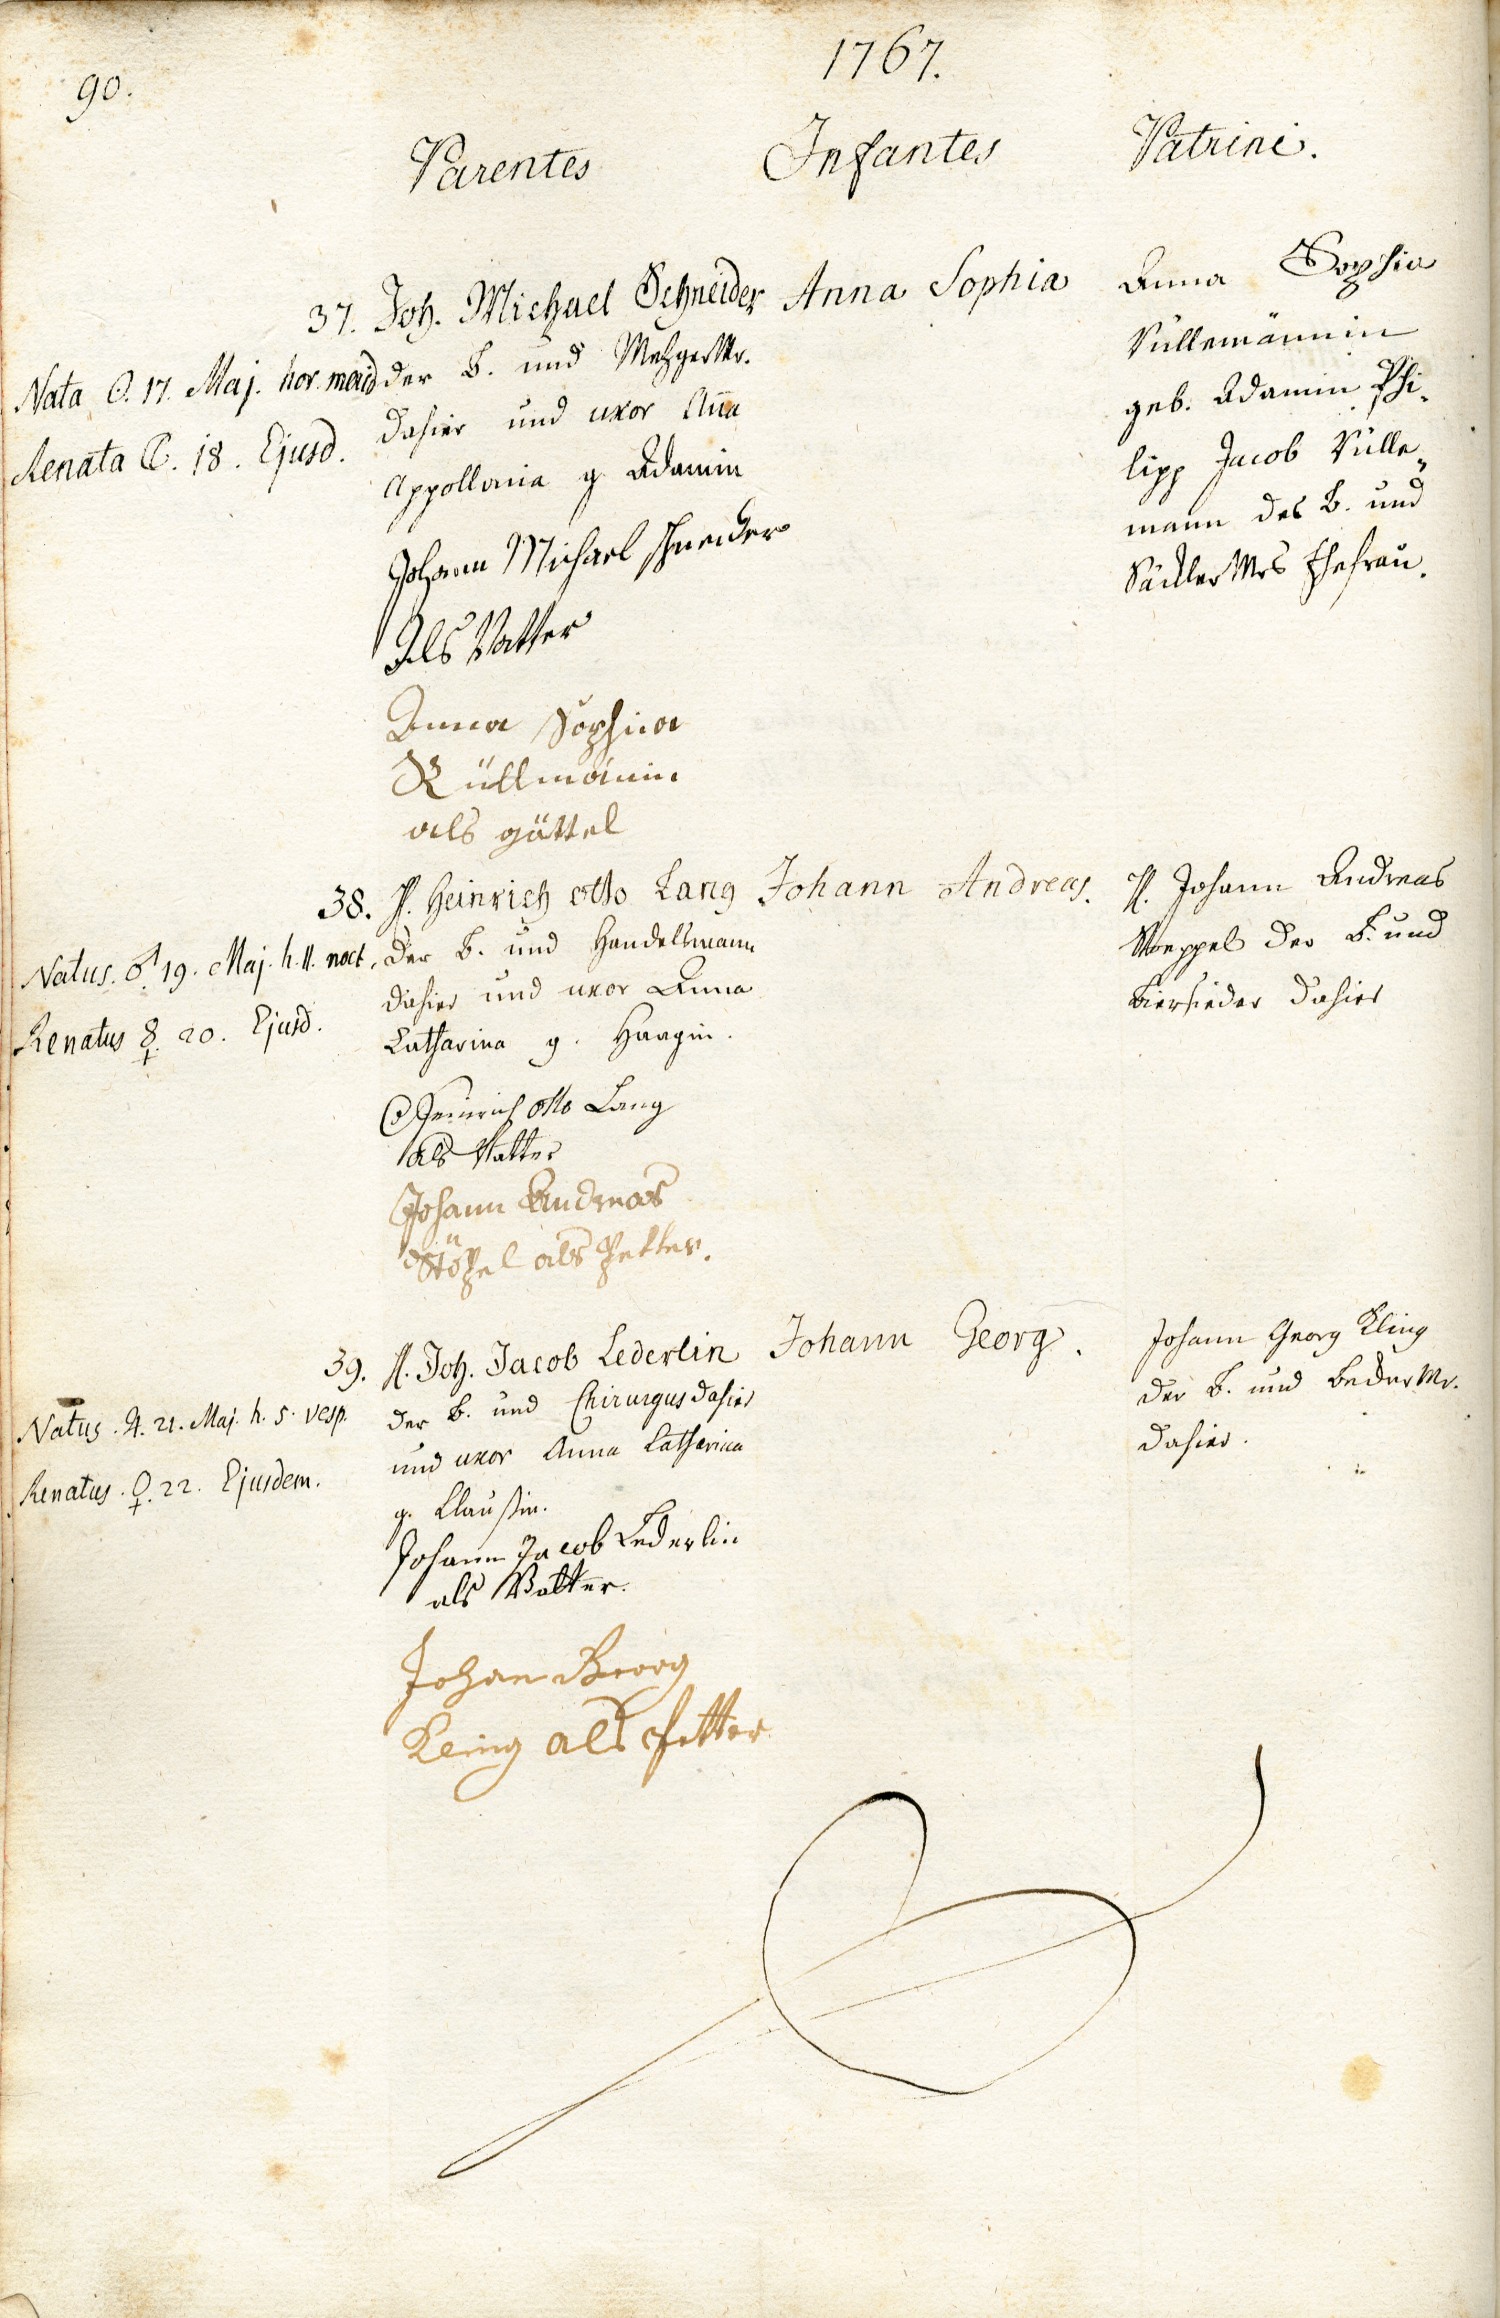 90.
1767.
Parentes Infantes Patrini.
37. Joh. Michael Schneider Anna Sophia
der B. und Mezger Mr.
dahier und uxor Aña
Appollonia g. Adamin
Nata ☉. 17. Maj. hor. merid
Renata ☾. 18. Ejusd.
Anna Sophia
Küllemännin
geb. Adamin Phi-
lipp Jacob Külle-
mann des B. und
Säckler Mrs Ehefrau.
Johann Michael schneider
Als Vatter
Anna Sophia
Küllmänin
als göttel
38. H. Heinrich Otto Lang Johann Andreas.
der B. und Handelsmann
dahier und uxor Anna
Catharina g. Haagin.
Natus. ♂. 19. Maj. h. 11. noct.
Renatus ☿. 20. Ejusd.
H. Johann Andreas
Stoeppel der B. und
Biersieder dahier
Heinrich Otto Lang
als Vatter
Johann Andreas
Stöpel als Petter.
39. H. Joh. Jacob Lederlin Johann Georg.
der B. und Chirurgus dahier
und uxor Anna Catharina
g. Claußin.
Natus. ♃. 21. Maj. h. 5. vesp.
Renatus. ♀. 22. Ejusdem.
Johann Georg Kling
der B. und Beder Mr.
dahier.
Johann Jacob Lederlin
als Vatter.
Johan Georg
Kling als Petter